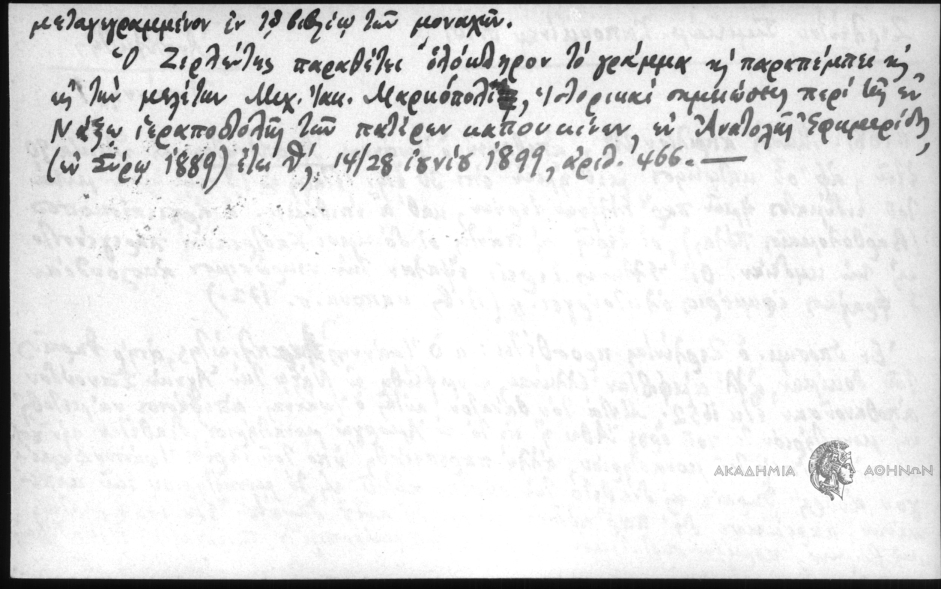 μεταγεγραμμένον ἐν τῷ βιβλίῳ τῶν μοναχῶν.
Ὁ Ζερλέντης παραθέτει ὁλόκληρον τὸ γράμμα κ παραπέμπει κ
εἰς τὴν μελέτην Μιχ. Ἰακ. Μαρκόπολι, Ἱστορικαὶ σημειώσεις περὶ τῆς ἐν
Νάξῳ ἱεραποστολῆς τῶν πατέρων καπουκίνων, ἐν Ἀνατολῆς Ἐφημερίδι,
(ἐν Σύρῳ 1889) ἔτει Θ', 14/28 ἰουνίου 1899, ἀριθ. 466. —
ΑΚΑΔΗΜΙΑ ΑΘΗΝΩΝ